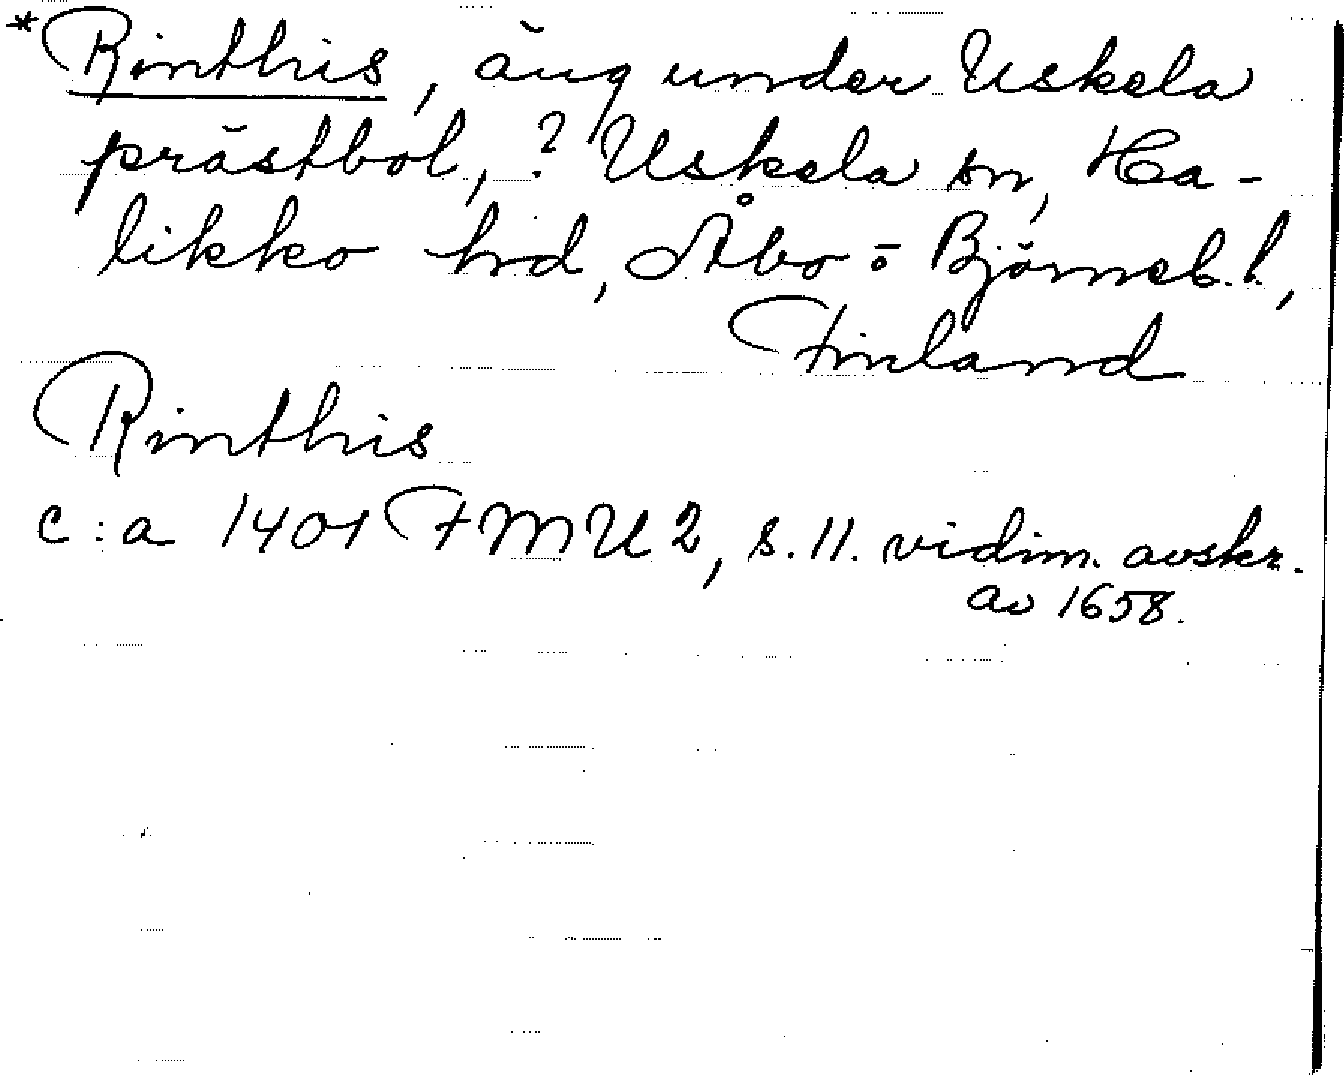 *Rinthis, äng under Uskela
prästbol, ? Uskela sn, Ha-
likko hrd, Åbo o Björneb. l.,
Finland
Rinthis
c:a 1401 FMU 2, s. 11. vidim. avskr.
av 1658.